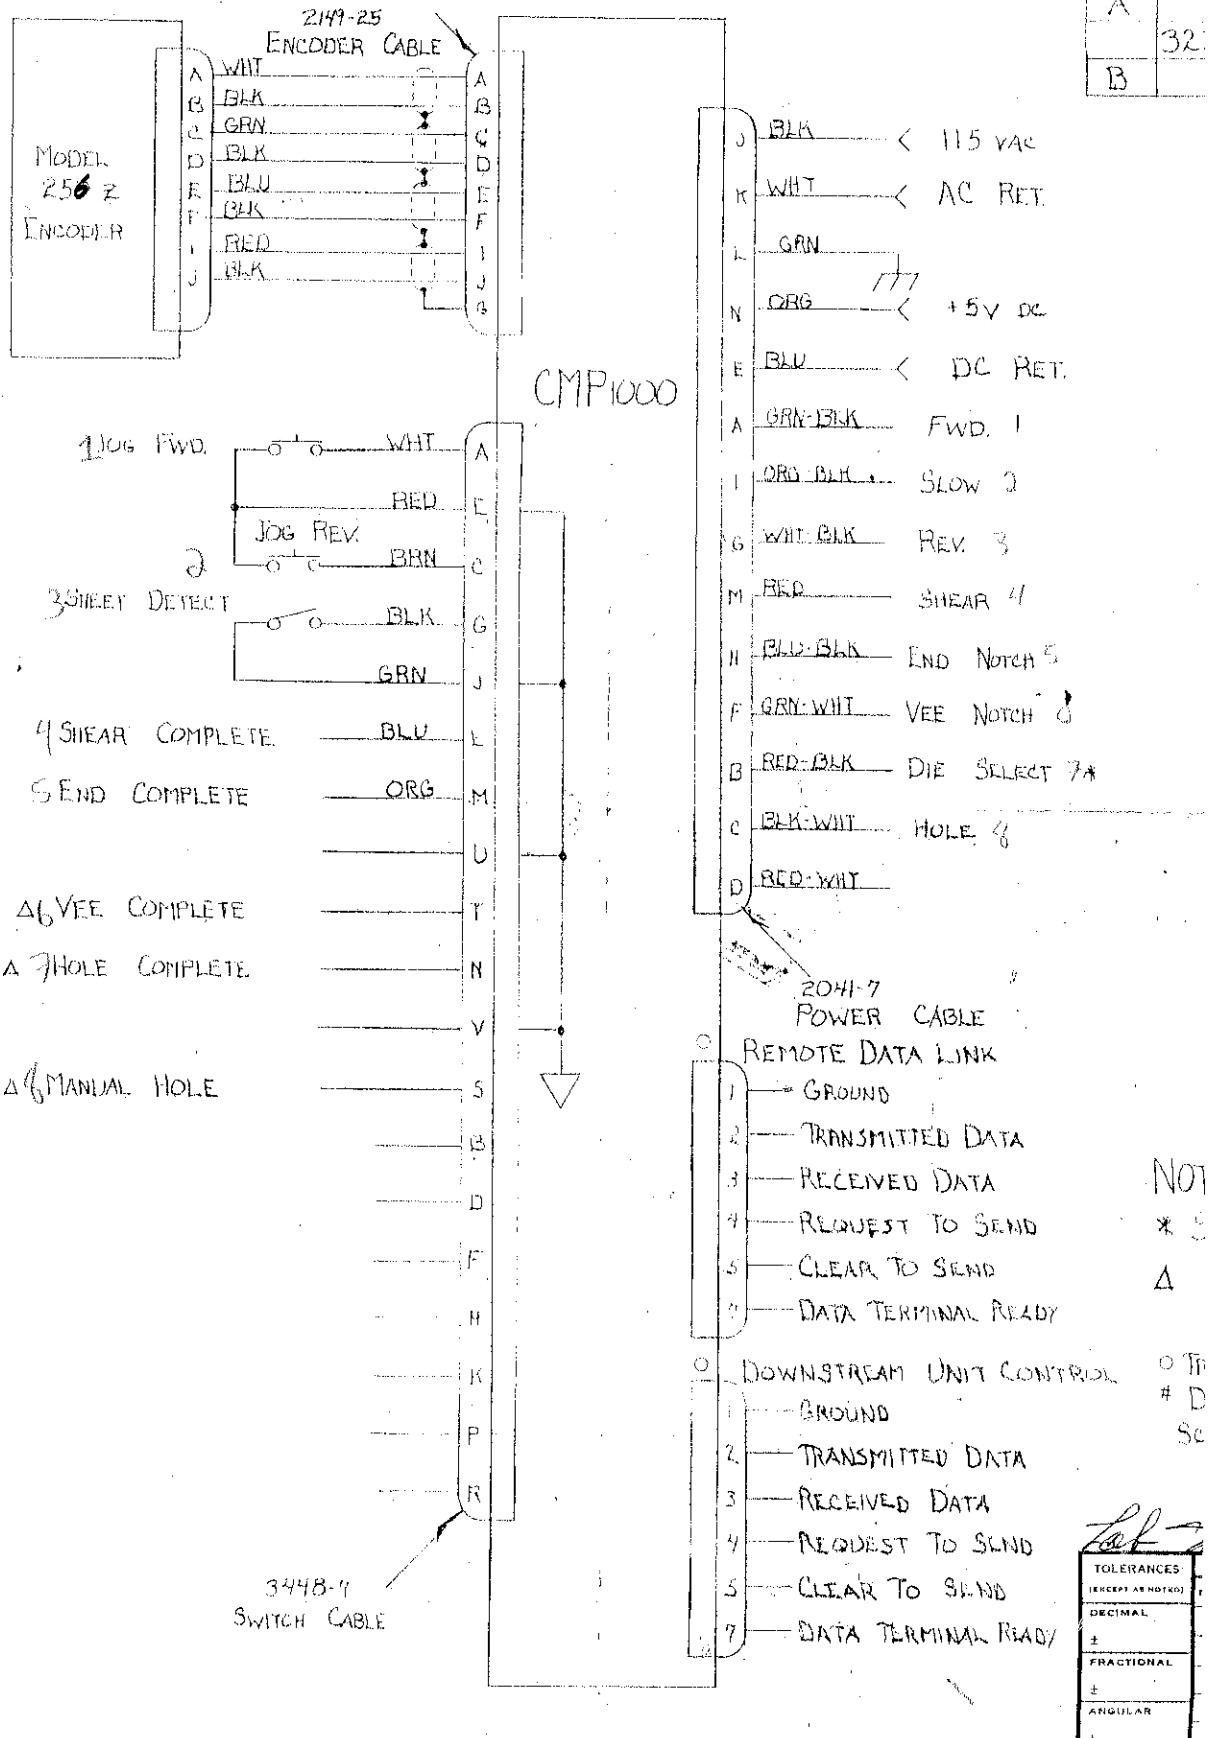 2149-25
ENCODER CABLE
MODEL
256 Z
ENCODER
A WHT A
B BLK B
C GRN C
D BLK D
E BLU E
F BLK F
I RED I
J BLK J
B
CMP1000
1 JOG FWD. WHT A
RED E
JOG REV.
2 BRN C
3 SHEET DETECT BLK G
GRN J
4 SHEAR COMPLETE BLU L
5 END COMPLETE ORG M
U
Δ 6 VEE COMPLETE T
Δ 7 HOLE COMPLETE N
V
Δ 8 MANUAL HOLE S
B
D
F
H
K
P
R
3448-4
SWITCH CABLE
A
32
B
J BLK < 115 VAC
K WHT < AC RET.
L GRN
N ORG < +5V DC
E BLU < DC RET.
A GRN-BLK FWD. 1
I ORG-BLK SLOW 2
G WHT-BLK REV. 3
M RED SHEAR 4
H BLU-BLK END NOTCH 5
F GRN-WHT VEE NOTCH 6
B RED-BLK DIE SELECT 7*
C BLK-WHT HOLE 8
D RED-WHT
2041-7
POWER CABLE
REMOTE DATA LINK
1 GROUND
2 TRANSMITTED DATA
3 RECEIVED DATA
4 REQUEST TO SEND
5 CLEAR TO SEND
7 DATA TERMINAL READY
DOWNSTREAM UNIT CONTROL
1 GROUND
2 TRANSMITTED DATA
3 RECEIVED DATA
4 REQUEST TO SEND
5 CLEAR TO SEND
7 DATA TERMINAL READY
NOT
*
Δ
# D
SC
TOLERANCES
(EXCEPT AS NOTED)
DECIMAL
±
FRACTIONAL
±
ANGULAR